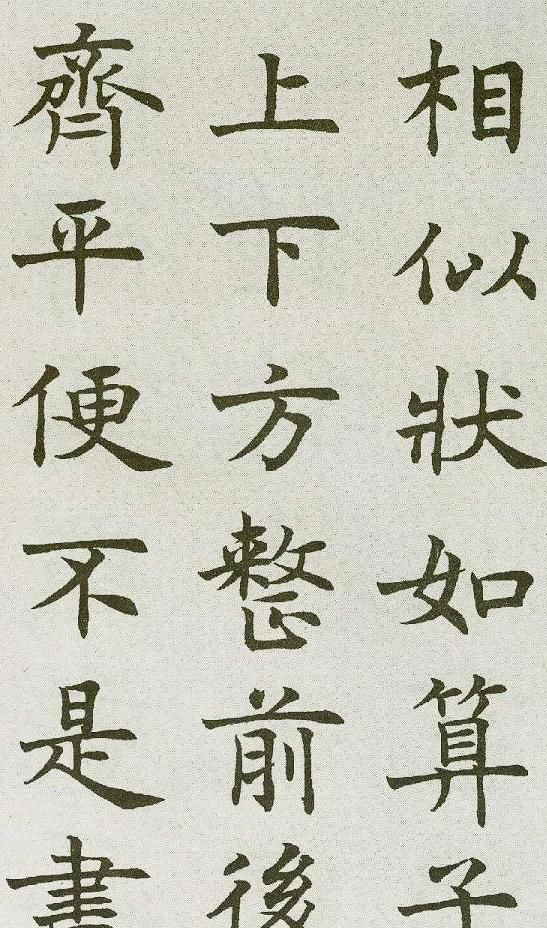 相似狀如算子
上下方整前後
齊平便不是書